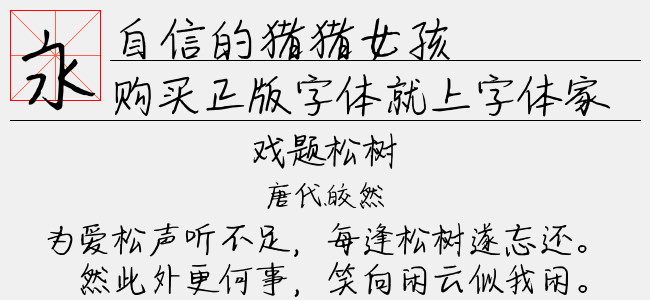 永
自信的猪猪女孩
购买正版字体就上字体家
戏题松树
唐代皎然
为爱松声听不足，每逢松树遂忘还。
然此外更何事，笑向闲云似我闲。